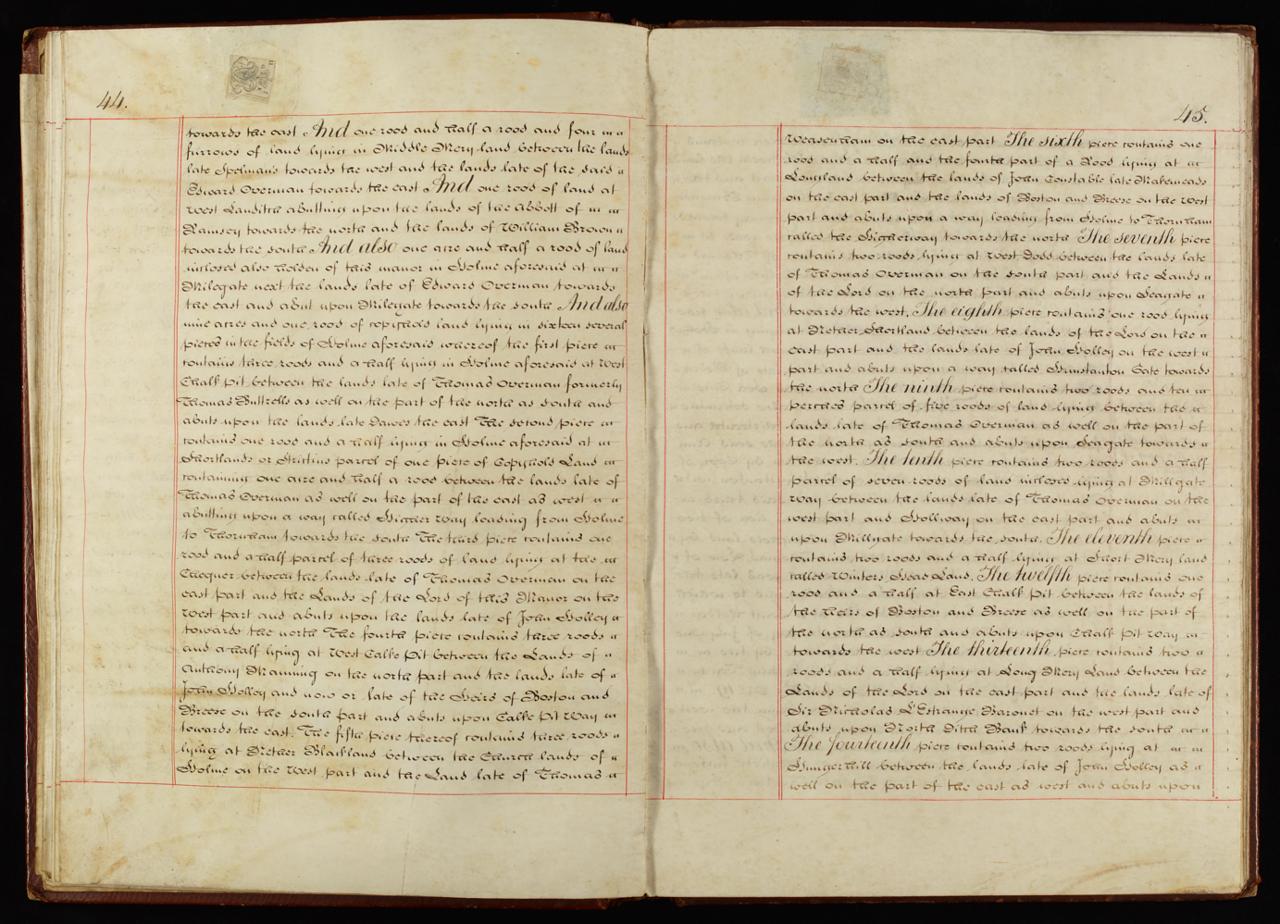 44.
towards the east And one rood and half a rood and four
furrows of land lying in Middle Mery land between the lands
late Spelmans towards the west and the lands late of the said
Edward Overman towards the east And one rood of land at
West Landitch abutting upon the lands of the Abbott of
Ramsey towards the north and the lands of William Brown
towards the south And also one acre and half a rood of land
inclosed also holden of this manor in Holme aforesaid at
Milegate next the lands late of Edward Overman towards
the east and abut upon Milegate towards the south And also
nine acres and one rood of copyhold land lying in sixteen several
pieces in the fields of Holme aforesaid whereof the first piece
contains three roods and a half lying in Holme aforesaid at West
Chalk Pit between the lands late of Thomas Overman formerly
Thomas Buttrells as well on the part of the north as south and
abuts upon the lands late Dawes the east The second piece
contains one rood and a half lying in Holme aforesaid at
Shortlands or parcel of one piece of Copyhold Land
containing one acre and half a rood between the lands late of
Thomas Overman as well on the part of the east as west
abutting upon a way called Higher Way leading from Holme
to Thornham towards the south The third piece contains one
rood and a half parcel of three roods of land lying at the
Chequer between the lands late of Thomas Overman on the
east part and the Lands of the Lord of this Manor on the
West part and abuts upon the lands late of John Holley
towards the north The fourth piece contains three roods
and a half lying at West Calke Pit between the Lands of
Anthony Manning on the north part and the lands late of
John Holley and now or late of the Heirs of Boston and
Breese on the south part and abuts upon Calke Pit Way
towards the east. The fifth piece thereof contains three roods
lying at Nether Blackland between the Church lands of
Holme on the West part and the Land late of Thomas
45.
Weasenham on the east part The sixth piece contains one
rood and a half and the fourth part of a Rood lying at
Longland between the lands of John Constable late Makemeads
on the east part and the lands of Boston and Breese on the West
part and abuts upon a way leading from Holme to Thornham
called the Higherway towards the north The seventh piece
contains two roods lying at West Dodd between the lands late
of Thomas Overman on the south part and the Lands
of the Lord on the north part and abuts upon Seagate
towards the west. The eighth piece contains one rood lying
at Nether Shortland between the lands of the Lord on the
east part and the lands late of John Holley on the west
part and abuts upon a way called Grimstanton Gate towards
the north The ninth piece contains two roods and ten
perches parcel of five roods of land lying between the
lands late of Thomas Overman as well on the part of
the north as south and abuts upon Seagate towards
the west. The tenth piece contains two roods and a half
parcel of seven roods of land inclosed lying at Millgate
way between the lands late of Thomas Overman on the
west part and Hollway on the east part and abuts
upon Millgate towards the south. The eleventh piece
contains two roods and a half lying at Short Mery land
called Winters Head Land. The twelfth piece contains one
rood and a half at East Chalk Pit between the lands of
the heirs of Boston and Breese as well on the part of
the north as south and abuts upon Chalk Pit Way
towards the west The thirteenth piece contains two
roods and a half lying at Long Mery Land between the
Lands of the Lord on the east part and the lands late of
Sir Nicholas L'Estrange Baronet on the west part and
abuts upon North Ditch Bank towards the south
The fourteenth piece contains two roods lying at
Hungerhill between the lands late of John Holley as
well on the part of the east as west and abuts upon